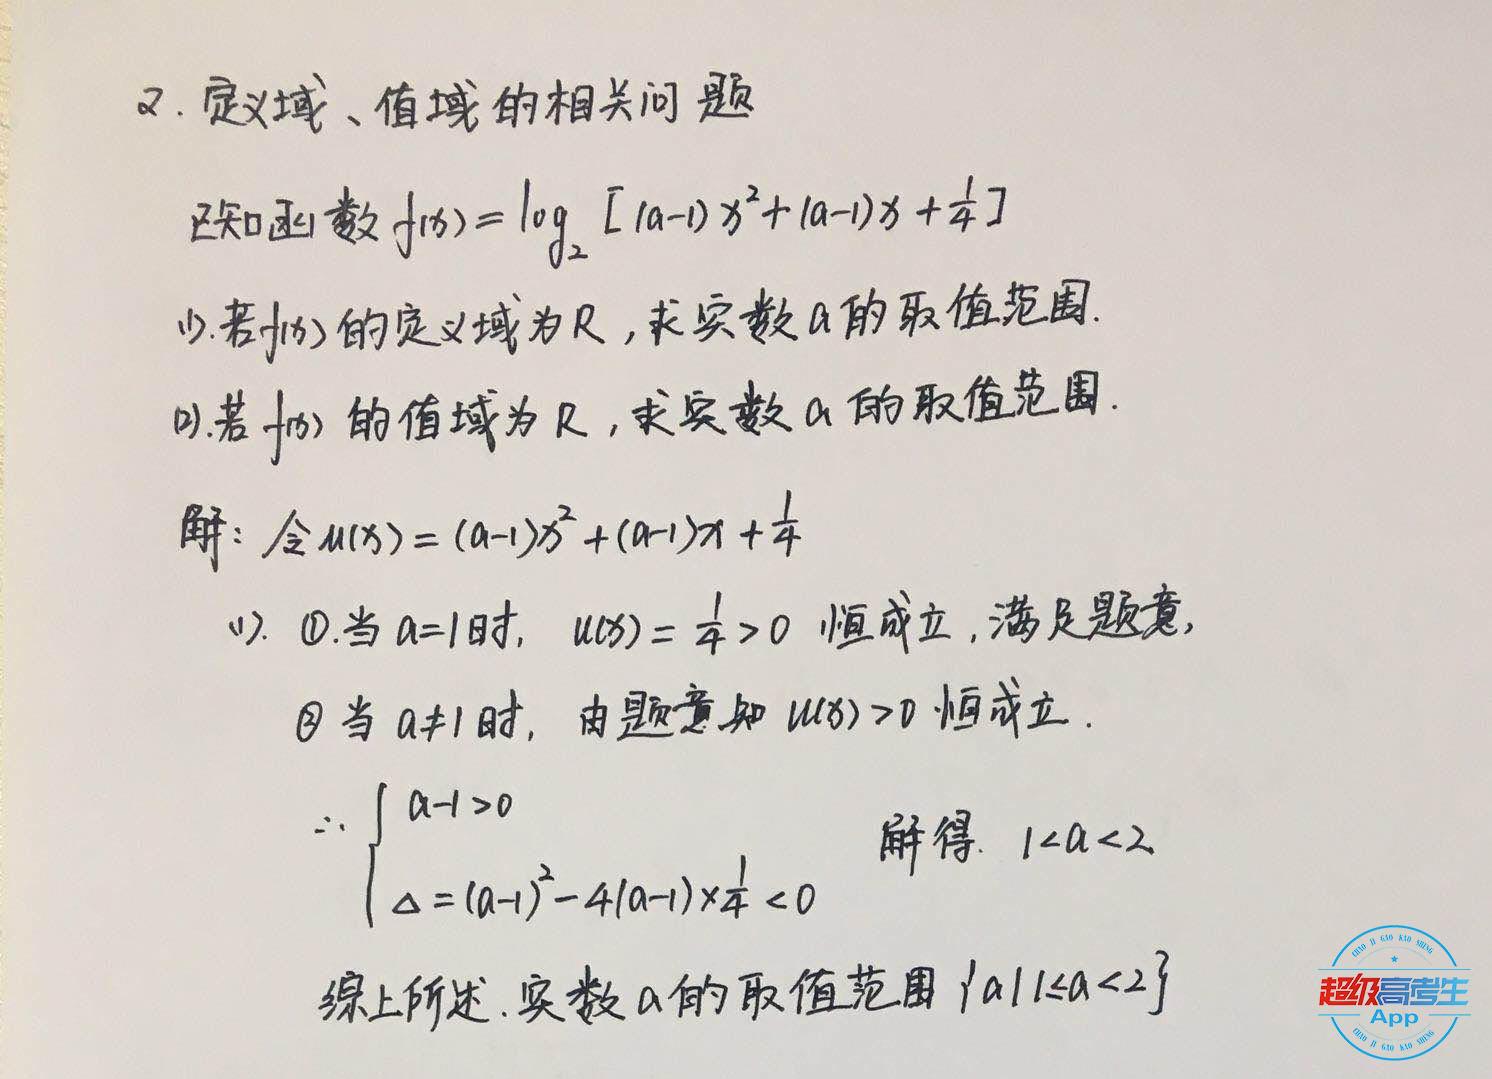 2. 定义域、值域的相关问题
已知函数f(x)=log₂[(a-1)x²+(a-1)x+1/4]
(1).若f(x)的定义域为R,求实数a的取值范围.
(2).若f(x)的值域为R,求实数a的取值范围.
解:令u(x)=(a-1)x²+(a-1)x+1/4
(1). ①.当a=1时, u(x)=1/4>0 恒成立,满足题意,
②当a≠1时, 由题意知u(x)>0恒成立.
∴ { a-1>0
Δ=(a-1)²-4(a-1)×1/4<0
解得. 1<a<2
综上所述.实数a的取值范围{a|1≤a<2}
CHAO JI GAO KAO SHENG
超级高考生
App
CHAO JI GAO KAO SHENG